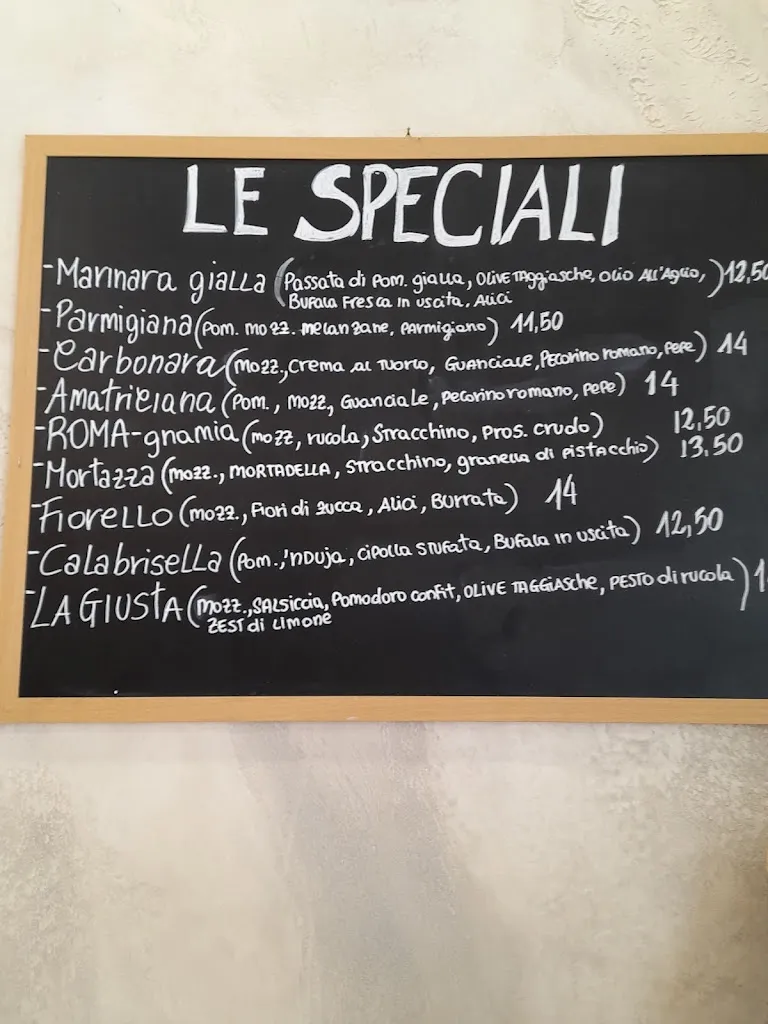 LE SPECIALI
- Marinara gialla (Passata di Pom. gialla, OLIVE TAGgiASCHE, OLIO ALL'AGLIO,) 12,50
BUFALA FRESCA IN USCITA, ALICI
- Parmigiana (Pom. mozz. melanzane, PARMIGIANO) 11,50
- Carbonara (mozz, CREMA AL TUORLO, GUANCIALE, PECORINO ROMANO, PEPE) 14
- Amatriciana (Pom., mozz, GUANCIALE, PECORINO ROMANO, PEPE) 14
- ROMA-gnamia (mozz, rucola, Stracchino, Pros. crudo) 12.50
- Mortazza (mozz., MORTADELLA, Stracchino, granella di pistacchio) 13.50
- Fiorello (mozz., Fiori di zucca, Alici, Burrata) 14
- Calabrisella (Pom., 'NDUJA, CIPOLLA STUFATA, BUFALA IN USCITA) 12,50
- LA GIUSTA (mozz., SALSICCIA, Pomodoro confit, OLIVE TAGGIASCHE, PESTO di rucola)
ZEST di LIMONE